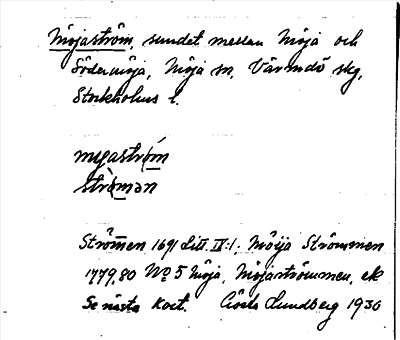 Möjaström, sundet mellan Möja och
Södermöja, Möja sn, Värmdö skg,
Stockholms l.
myaström
strömən
Strömen 1691 Litt. IV:1. Möija Strömmen
1779,80 No 5 Möja, Möjaströmmen, ek
Se nästa kort. Gösta Lundberg 1930